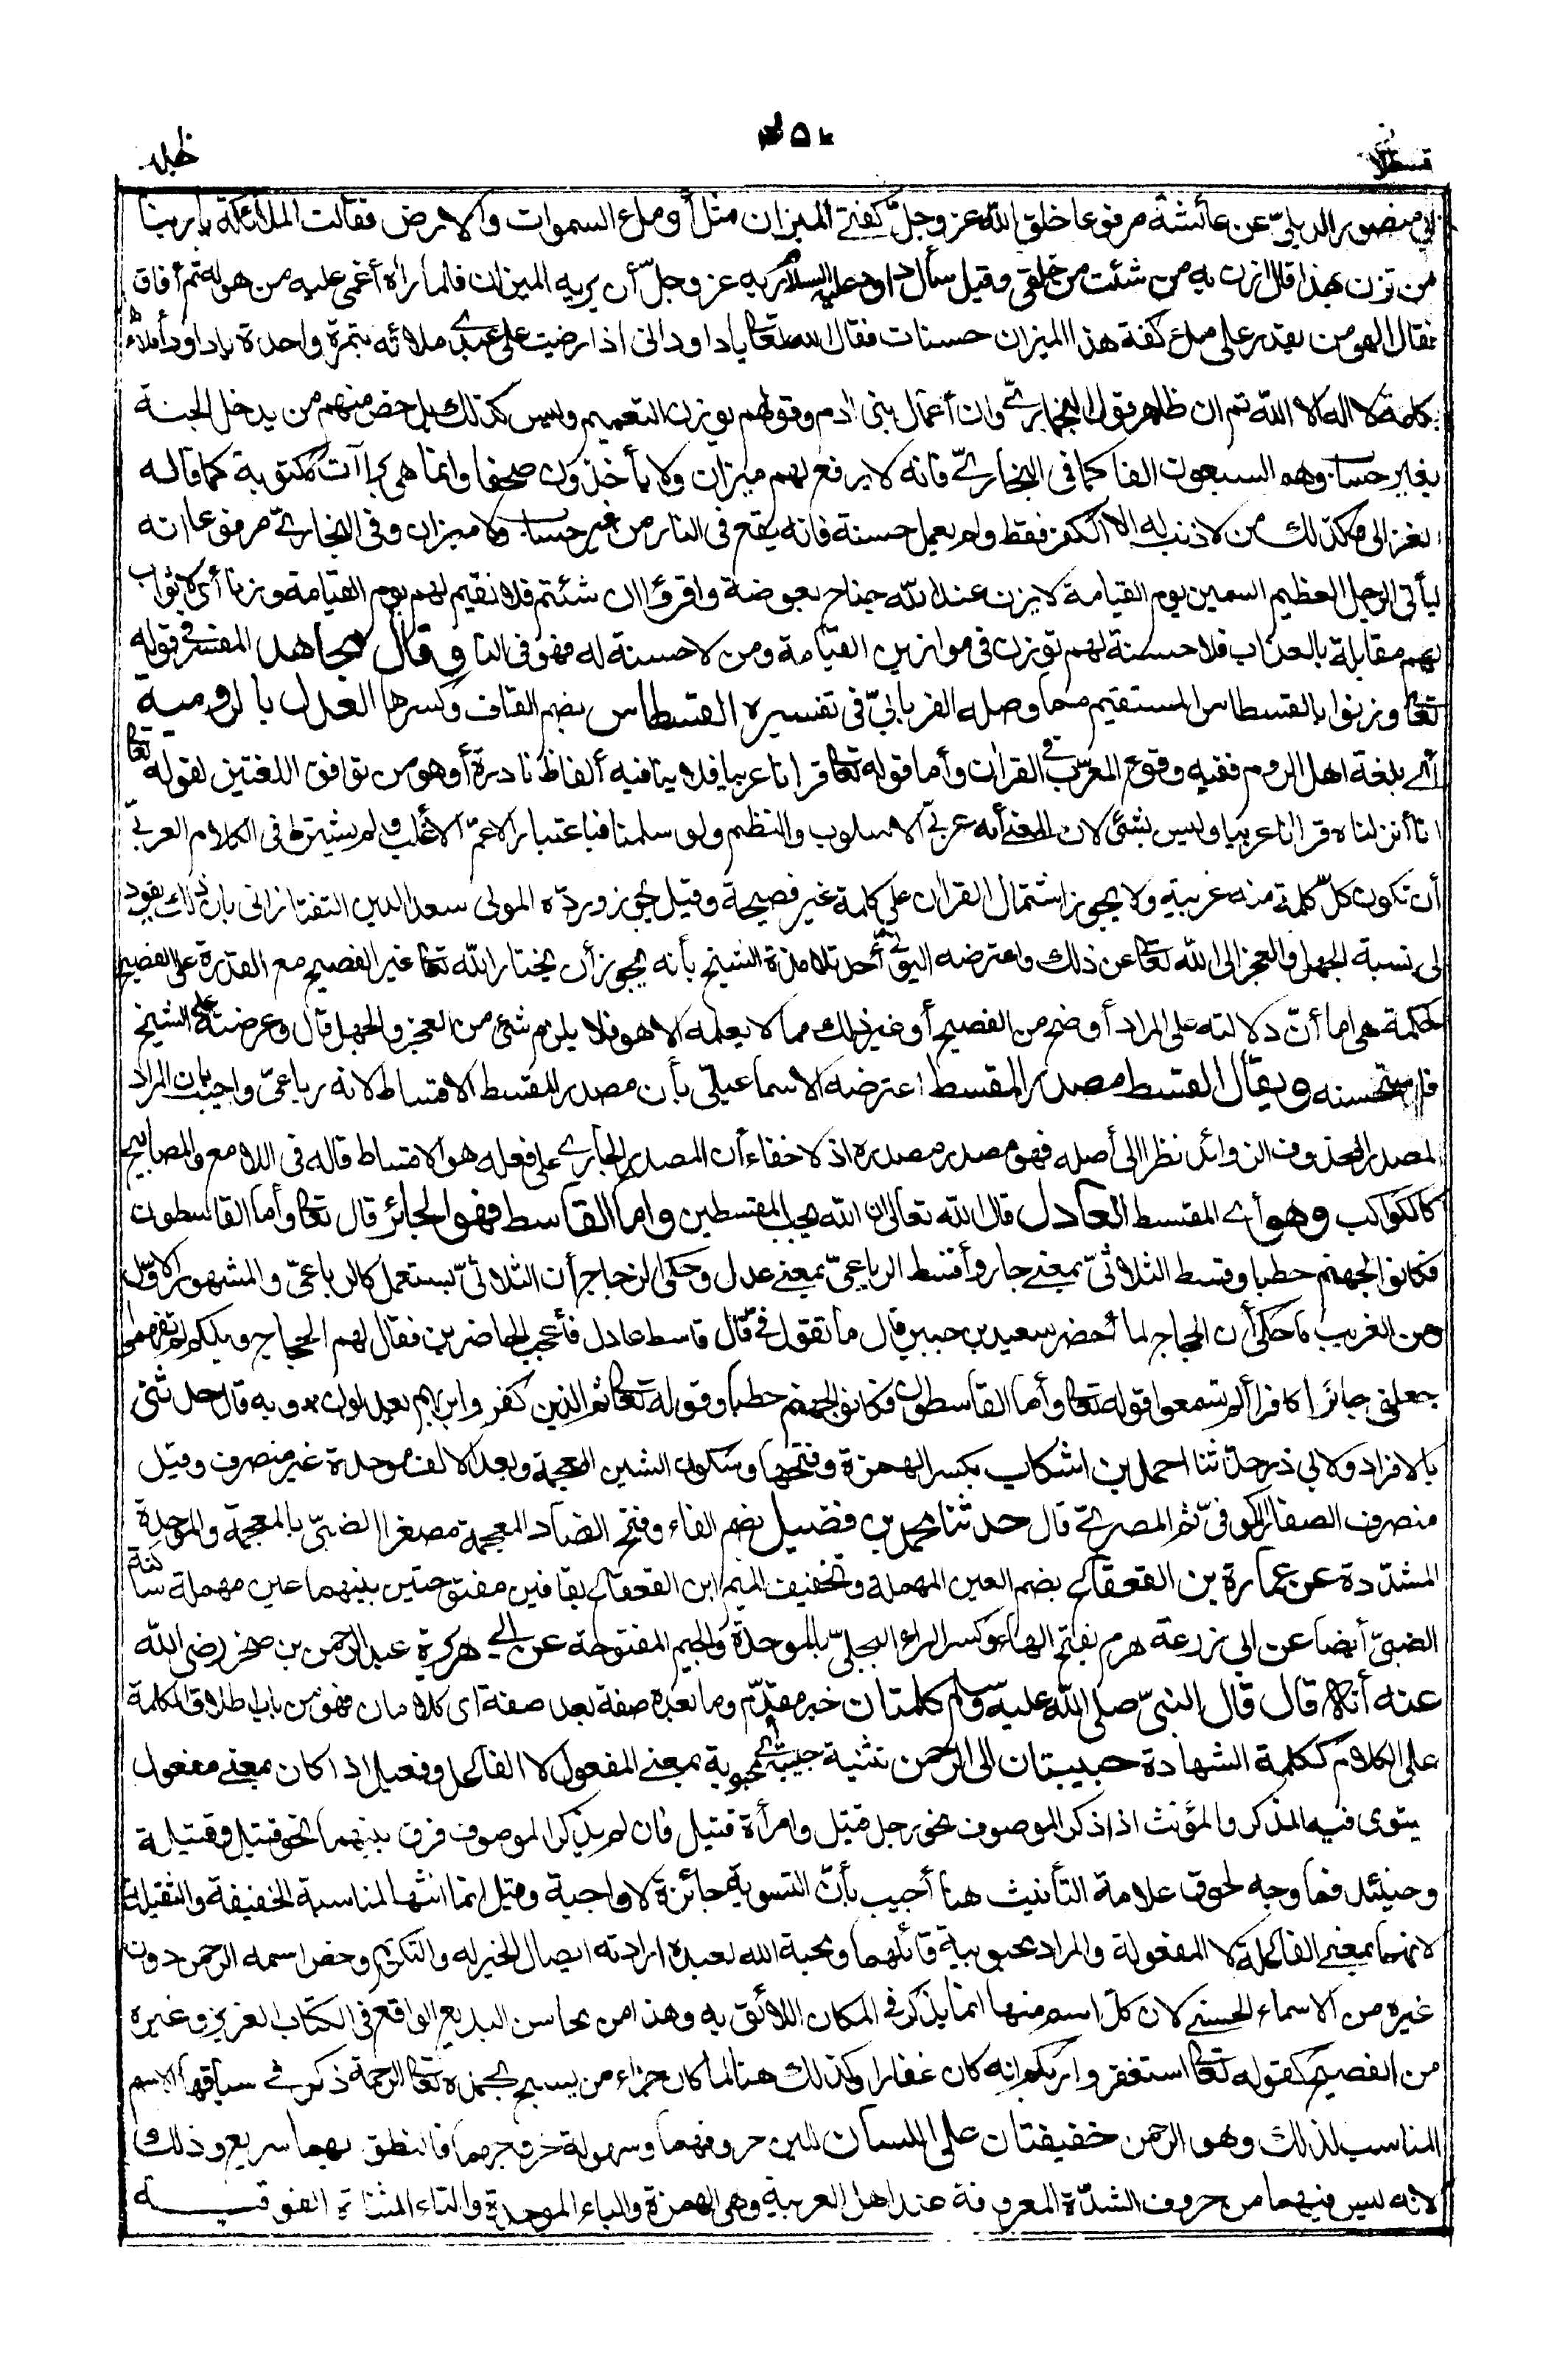 قسطلا
خله
ابي منصور الديلميّ عن عائشة مرفوعا خلق الله عز وجلّ كفتي الميزان مثل أو ملء السموات والارض فقالت الملائكة يا ربنا
من تزن بهذا قال ازن به من شئت من خلقي وقيل سأل داود عليه السلام ربه عز وجلّ أن يريه الميزان فلما رأه أغمى عليه من هوله ثم أفاق
فقال الهي من يقدر على ملء كفة هذا الميزان حسنات فقال الله تعا يا داود اني اذا رضيت على عبدي ملائته بتمرة واحدة يا داود أملاها
بكلمة لا اله الا الله ثم ان ظاهر قول البخاريّ وان أعمال بني ادم وقولهم يوزن التعميم وليس كذلك بل خص منهم من يدخل الجنة
بغير حساب وهم السبعون الفا كما في البخاريّ فانه لا يرفع لهم ميزان ولا يأخذون صحفا وانما هي برا آت مكتوبة كما قاله
الغزالى وكذلك من لا ذنب له الا الكفر فقط ولم يعمل حسنة فانه يقع في النار من غير حساب ولا ميزان وفي البخاريّ مرفوعا انه
ليأتي الرجل العظيم السمين يوم القيامة لا يزن عند الله جناح بعوضة واقرؤا ان شئتم فلا نقيم لهم يوم القيامة وزنا أي لا ثواب
لهم مقابلة بالعذاب فلا حسنة لهم توزن في موازين القيامة ومن لا حسنة له فهو في النار وقال مجاهد المفسر في قوله
تعا وزنوا بالقسطاس المستقيم مما وصله الفريابيّ في تفسيره القسطاس بضم القاف وكسرها العدل بالرومية
أي بلغة اهل الروم ففيه وقوع المعرّب في القران وأما قوله تعا قرانا عربيا فلا ينافيه ألفاظ نادرة أو هو من توافق اللغتين لقوله تعا
انا أنزلناه قرانا عربيا وليس بشئ لان المعنى أنه عربيّ الاسلوب والنظم ولو سلمنا فباعتبار الاعمّ الاغلب ولم يشترط في الكلام العربيّ
أن تكون كلّ كلمة منه عربية ولا يجوز اشتمال القران على كلمة غير فصيحة وقيل يجوز وردّه المولى سعد الدين التفتازاني بان ذلك يقود
الى نسبة الجهل والعجز الى الله تعا عن ذلك واعترضه أحد تلامذة الشيخ بأنه يجوز أن يختار الله تعا غير الفصيح مع القدرة على الفصيح
لحكمة هي اما أنّ دلالته على المراد أوضح من الفصيح أو غير ذلك مما لا يعلمه الا هو فلا يلزم شئ من العجز والجهل قال وعرضته على الشيخ
فاستحسنه ويقال القسط مصدر المقسط اعترضه الاسماعيليّ بأن مصدر المقسط الاقساط لانه رباعيّ واجيب بان المراد
المصدر المحذوف الزوائد نظرا الى أصله فهو مصدر مصدره اذ لا خفاء أن المصدر الجاري على فعله هو الاقساط قاله في اللامع والمصابيح
كالكواكب وهو أي المقسط العادل قال الله تعالى ان الله يحب المقسطين واما القاسط فهو الجائر قال تعا وأما القاسطون
فكانوا لجهنم حطبا وقسط الثلاثيّ بمعنى جار وأقسط الرباعيّ بمعنى عدل وحكى الزجاج أن الثلاثيّ يستعمل كالرباعيّ والمشهور الاوّل
ومن الغريب ما حكى أن الحجاج لما أحضر سعيد بن جبير قال ما تقول فيّ قال قاسط عادل فأعجب الحاضرين فقال لهم الحجاج ويلكم لم تفهموا
جعلني جائرا كافرا ألم تسمعوا قوله تعا وأما القاسطون فكانوا لجهنم حطبا وقوله تعا ثم الذين كفروا بربهم يعدلون * وبه قال حدثني
بالافراد ولابي ذر حدّثنا احمد بن اشكاب بكسر الهمزة وفتحها وسكون الشين المعجمة وبعد الالف موحدة غير منصرف وقيل
منصرف الصفار الكوفيّ ثم المصريّ قال حدثنا محمد بن فضيل بضم الفاء وفتح الضاد المعجمة مصغرا الضبّيّ بالمعجمة والموحدة
المشدّدة عن عمارة بن القعقاع بضم العين المهملة وتخفيف الميم ابن القعقاع بقافين مفتوحتين بينهما عين مهملة ساكنة
الضبيّ أيضا عن ابي زرعة هرم بفتح الهاء وكسر الراء البجليّ بالموحدة والجيم المفتوحة عن أبي هريرة عبد الرحمن بن صخر رضي الله
عنه أنه قال قال النبيّ صلى الله عليه وسلم كلمتان خبر مقدّم وما بعده صفة بعد صفة اى كلامان فهو من باب اطلاق الكلمة
على الكلام ككلمة الشهادة حبيبتان الى الرحمن تثنية حبيبة أي محبوبة بمعنى المفعول لا الفاعل وفعيل اذا كان بمعنى مفعول
يستوى فيه المذكر والمؤنث اذا ذكر الموصوف نحو رجل قتيل وامرأة قتيل فان لم يذكر الموصوف فرق بينهما نحو قتيل وقتيلة
وحينئذ فما وجه لحوق علامة التأنيث هنا أجيب بأنّ التسوية جائزة لا واجبة وقيل انما انثها لمناسبة الخفيفة والثقيلة
لانهما بمعنى الفاعلة لا المفعولة والمراد محبوبية قائلهما ومحبة الله لعبده ارادته ايصال الخير له والتكريم وخص اسمه الرحمن دون
غيره من الاسماء الحسنى لان كلّ اسم منها انما يذكر في المكان اللائق به وهذا من محاسن البديع الواقع في الكتاب العزيز وغيره
من الفصيح كقوله تعا استغفروا ربكم انه كان غفارا وكذلك هنا لما كان جزاء من يسبح بحمده تعا الرحمة ذكر في سياقها الاسم
المناسب لذلك وهو الرحمن خفيفتان على اللسان للين حروفهما وسهولة خروجهما فالنطق بهما سريع وذلك
لانه ليس فيهما من حروف الشدّة المعروفة عند اهل العربية وهي الهمزة والباء الموحدة والتاء المثناة الفوقية